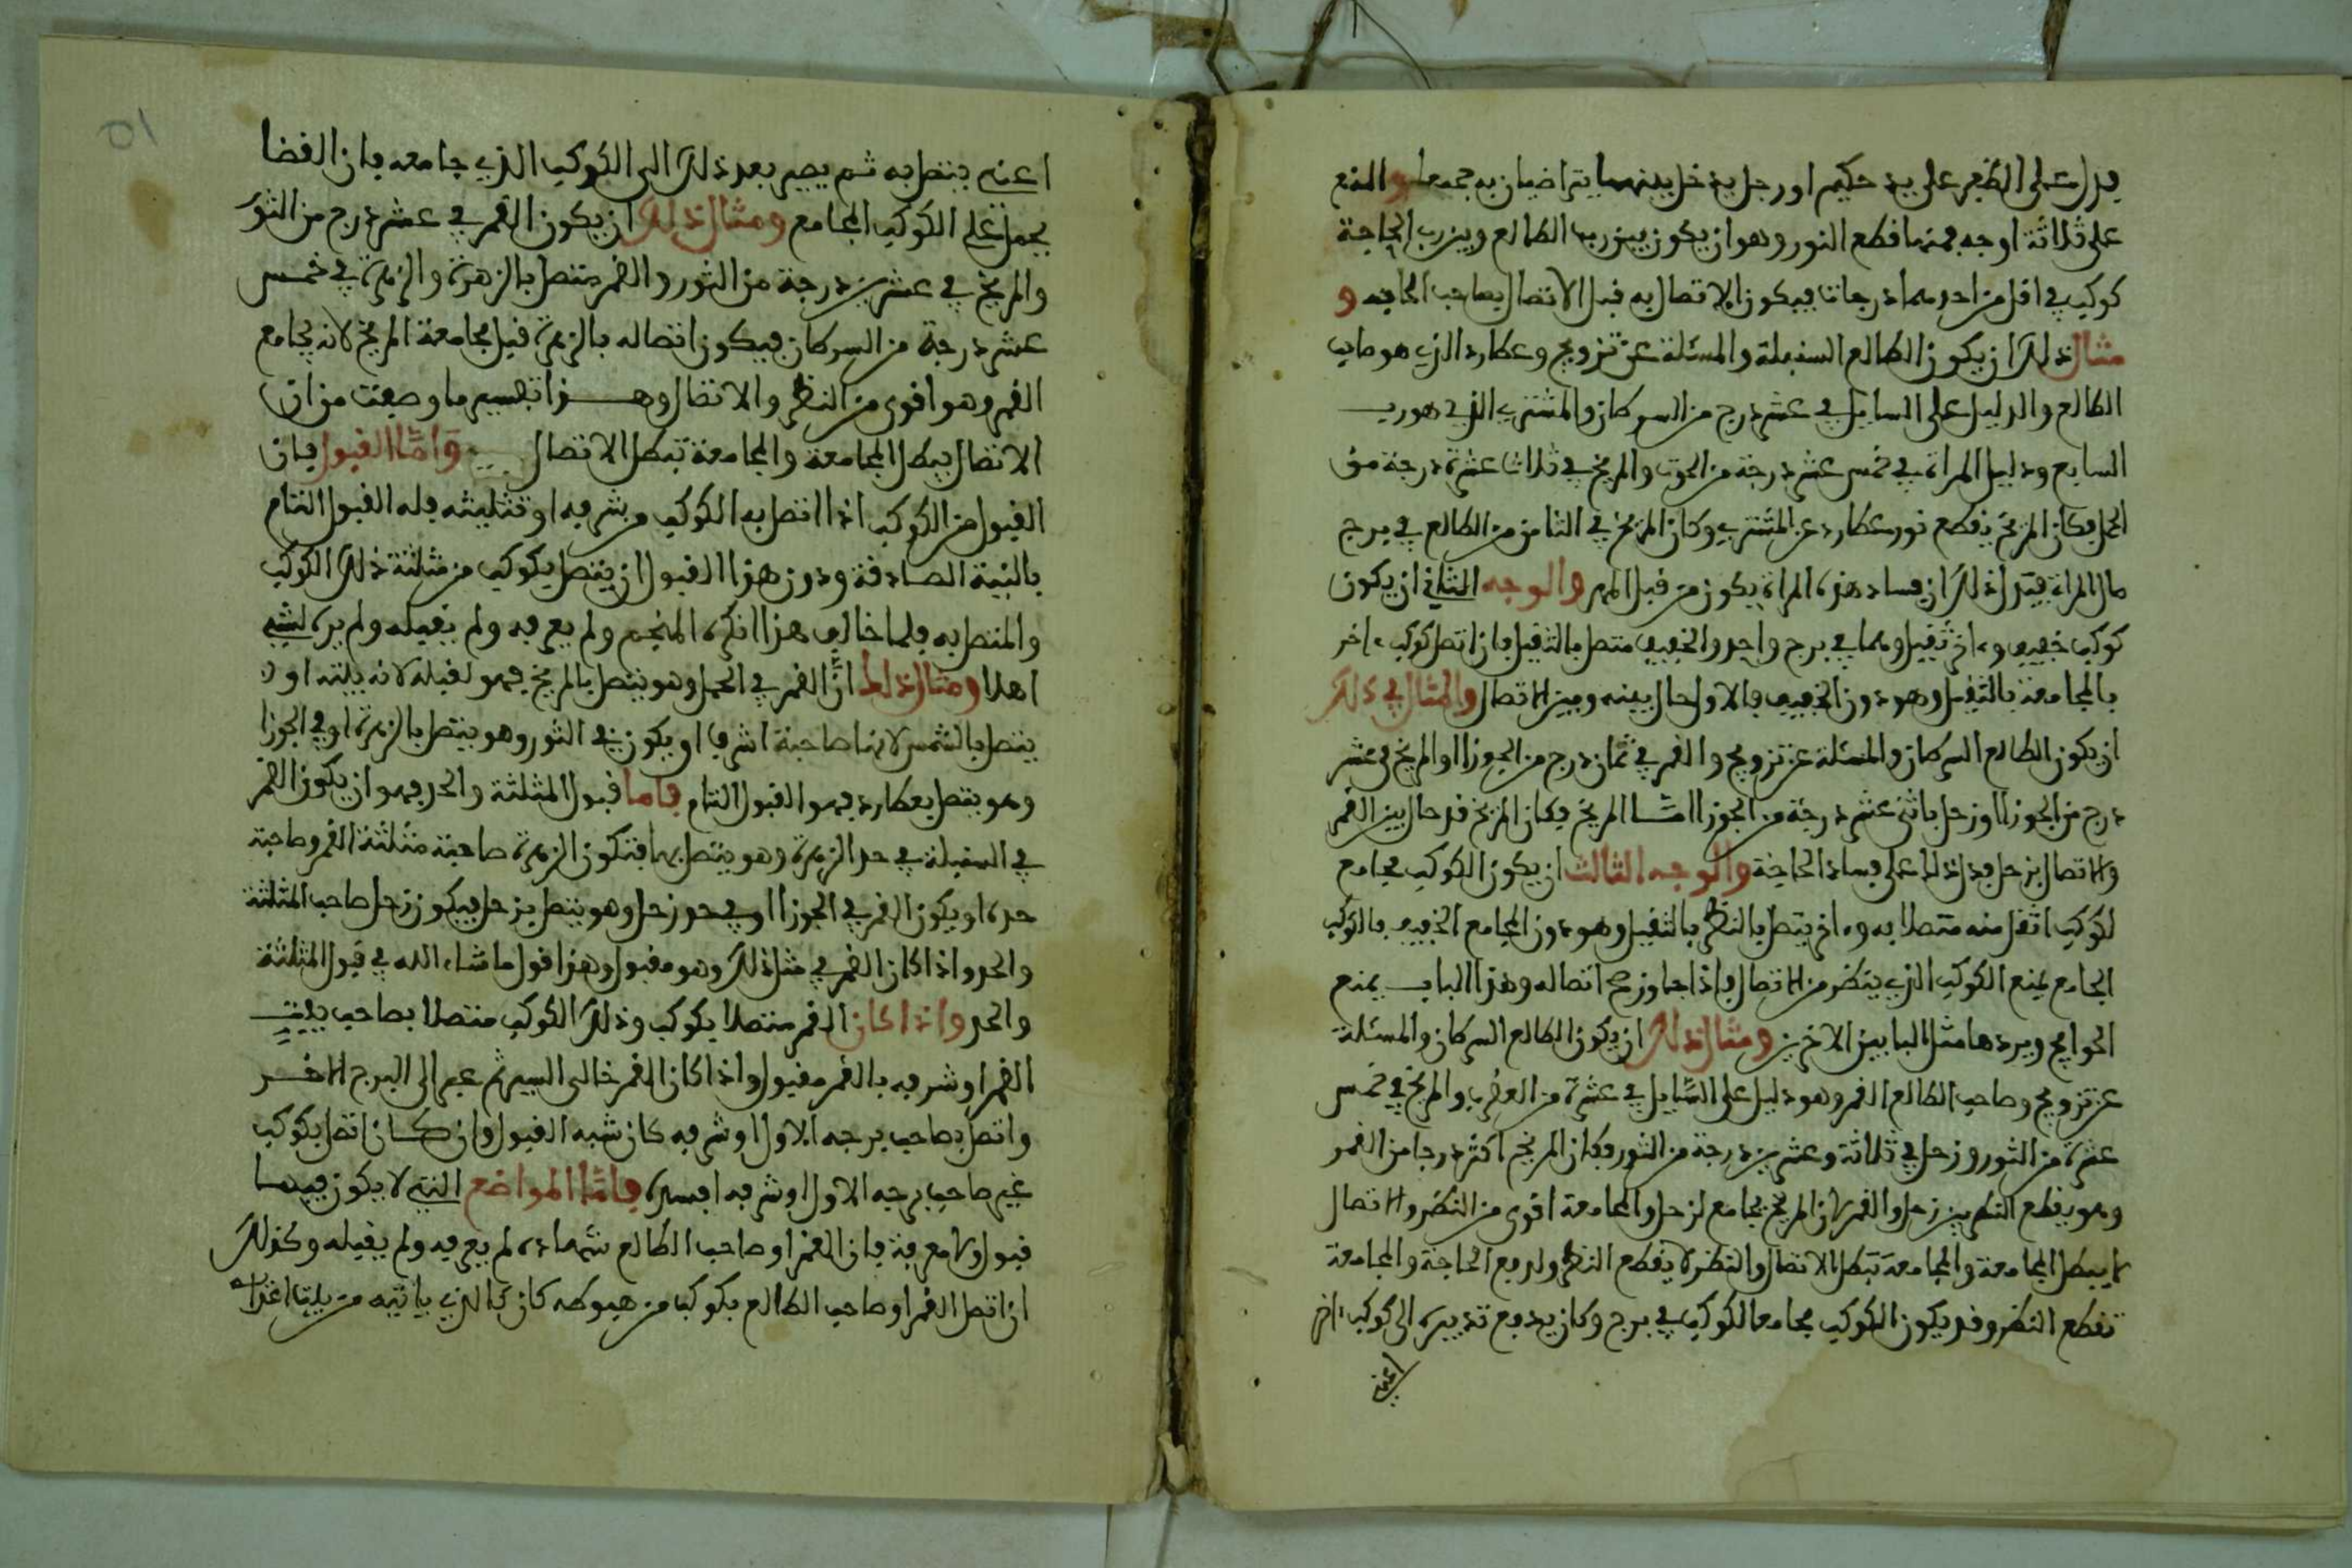 فيدل على الظفر على يد حكيم او رجل يدخل بينهما يتراضيان به جميعا والمنع
على ثلاثة اوجه فمنها قطع النور وهو ان يكون بين رب الطالع وبين رب الحاجة
كوكب في اقل من احدهما درجات فيكون الاتصال به قبل الاتصال بصاحب الحاجة و
مثال ذلك ان يكون الطالع السنبلة والمسئلة عن تزويج وعطارد الذي هو صاحب
الطالع والدليل على السايل في عشر درج من السرطان والمشتري الذي هو رب
السابع ودليل المراة في خمس عشر درجة من الحوت والمريخ في ثلاث عشرة درجة من
الحمل فكان المريخ يقطع نور عطارد عن المشتري وكان المريخ في الثامن من الطالع في برج
مال المراة فيدل ذلك ان فساد هذه المراة يكون من قبل المهر والوجه الثاني ان يكون
كوكب خفيف وءاخر ثقيل وهما في برج واحد والخفيف متصل بالثقيل فان اتصل كوكب ءاخر
بالمجامعة بالثقيل وهو دون الخفيف فالاول حال بينه وبين الاتصال والمثال في ذلك
ان يكون الطالع السرطان والمسئلة عن تزويج والقمر في ثمان درج من الجوزا والمريخ في عشر
درج من الجوزا وزحل باثنى عشر درجة من الجوزا امّا المريخ فكان المريخ قد حال بين القمر
والاتصال بزحل فدل ذلك على فساد الحاجة والوجه الثالث ان يكون الكوكب يجامع
لكوكب اثقل منه متصلا به وءاخر يتصل بالنظر بالثقيل وهو دون المجامع الخفيف فالكوكب
الجامع يمنع الكوكب الذي ينظر من الاتصال فاذا جاوز صح اتصاله وهذا الباب يمنع
الحوايج ويردها مثل البابين الاخرين ومثال ذلك ان يكون الطالع السرطان والمسئلة
عن تزويج وصاحب الطالع القمر وهو دليل على السّايل في عشرة من العقرب والمريخ في خمس
عشرة من الثور وزحل في ثلاثة وعشرين درجة من الثور فكان المريخ اكثر درجا من القمر
وهو يقطع النظر بين زحل والقمر لان المريخ يجامع لزحل والمجامعة اقوى من النظر والاتصال
لا يبطل المجامعة والمجامعة تبطل الاتصال والنظر لا يقطع النظر ولدفع الحاجة والمجامعة
تقطع النظر وقد يكون الكوكب مجامعا لكوكب في برج وكان يدفع تدبيره الى كوكب ءاخر
اعني
10
اعني يتصل به ثم يصير بعد ذلك الى الكوكب الذي جامعه فان القضا
يجعل على الكوكب المجامع ومثال ذلك ان يكون القمر في عشر درج من الثور
والمريخ في عشرين درجة من الثور والقمر متصل بالزهرة والزهرة في خمس
عشر درجة من السرطان فيكون اتصاله بالزهرة قبل مجامعة المريخ لانه يجامع
القمر وهو اقوى من النظر والاتصال وهذا تفسير ما وصفت من ان
الاتصال يبطل المجامعة والمجامعة تبطل الاتصال وَامّا القبول فان
القبول من الكوكب اذا اتصل به الكوكب من شرفه او تثليثه فله القبول التام
بالنية الصادقة ودون هذا القبول ان يتصل بكوكب من مثلثة ذلك الكوكب
والمتصل به فلما خالف هذا انكره المنجم ولم يعرفه ولم يقبله ولم يره لشيء
اهلا ومثال ذلك انّ القمر في الحمل وهو يتصل بالمريخ فهو لقبله لانه بيته او
يتصل بالشمس لانها صاحبة اشرف او يكون في الثور وهو يتصل بالزهرة او في الجوزا
وهو يتصل بعطارد فهو القبول التام فاما قبول المثلثة والحد فهو ان يكون القمر
في السنبلة في حد الزهرة وهو يتصل بها فتكون الزهرة صاحبة مثلثة القمر وصاحبة
حده او يكون القمر في الجوزا او في حد زحل وهو يتصل بزحل فيكون زحل صاحب المثلثة
والحد واذا كان القمر في مثل ذلك وهو مقبول وهذا قول ما شاء الله في قبول المثلثة
والحد واذا كان القمر متصلا بكوكب وذلك الكوكب متصلا بصاحب بيت
القمر او شرفه فالقمر مقبول واذا كان القمر خالى السير ثم عبر الى البرج الاخر
واتصل بصاحب برجه الاول او شرفه كان شبه القبول وان كان اتصل بكوكب
غير صاحب برجه الاول او شرفه افسده فامّا المواضع التي لا يكون فيها
قبول ولا معرفة فان القمر او صاحب الطالع لم يعرفه ولم يقبله وكذلك
ان اتصل القمر او صاحب الطالع بكوكب من هبوطه كان كالذي ياتيه من بيت اعدائه